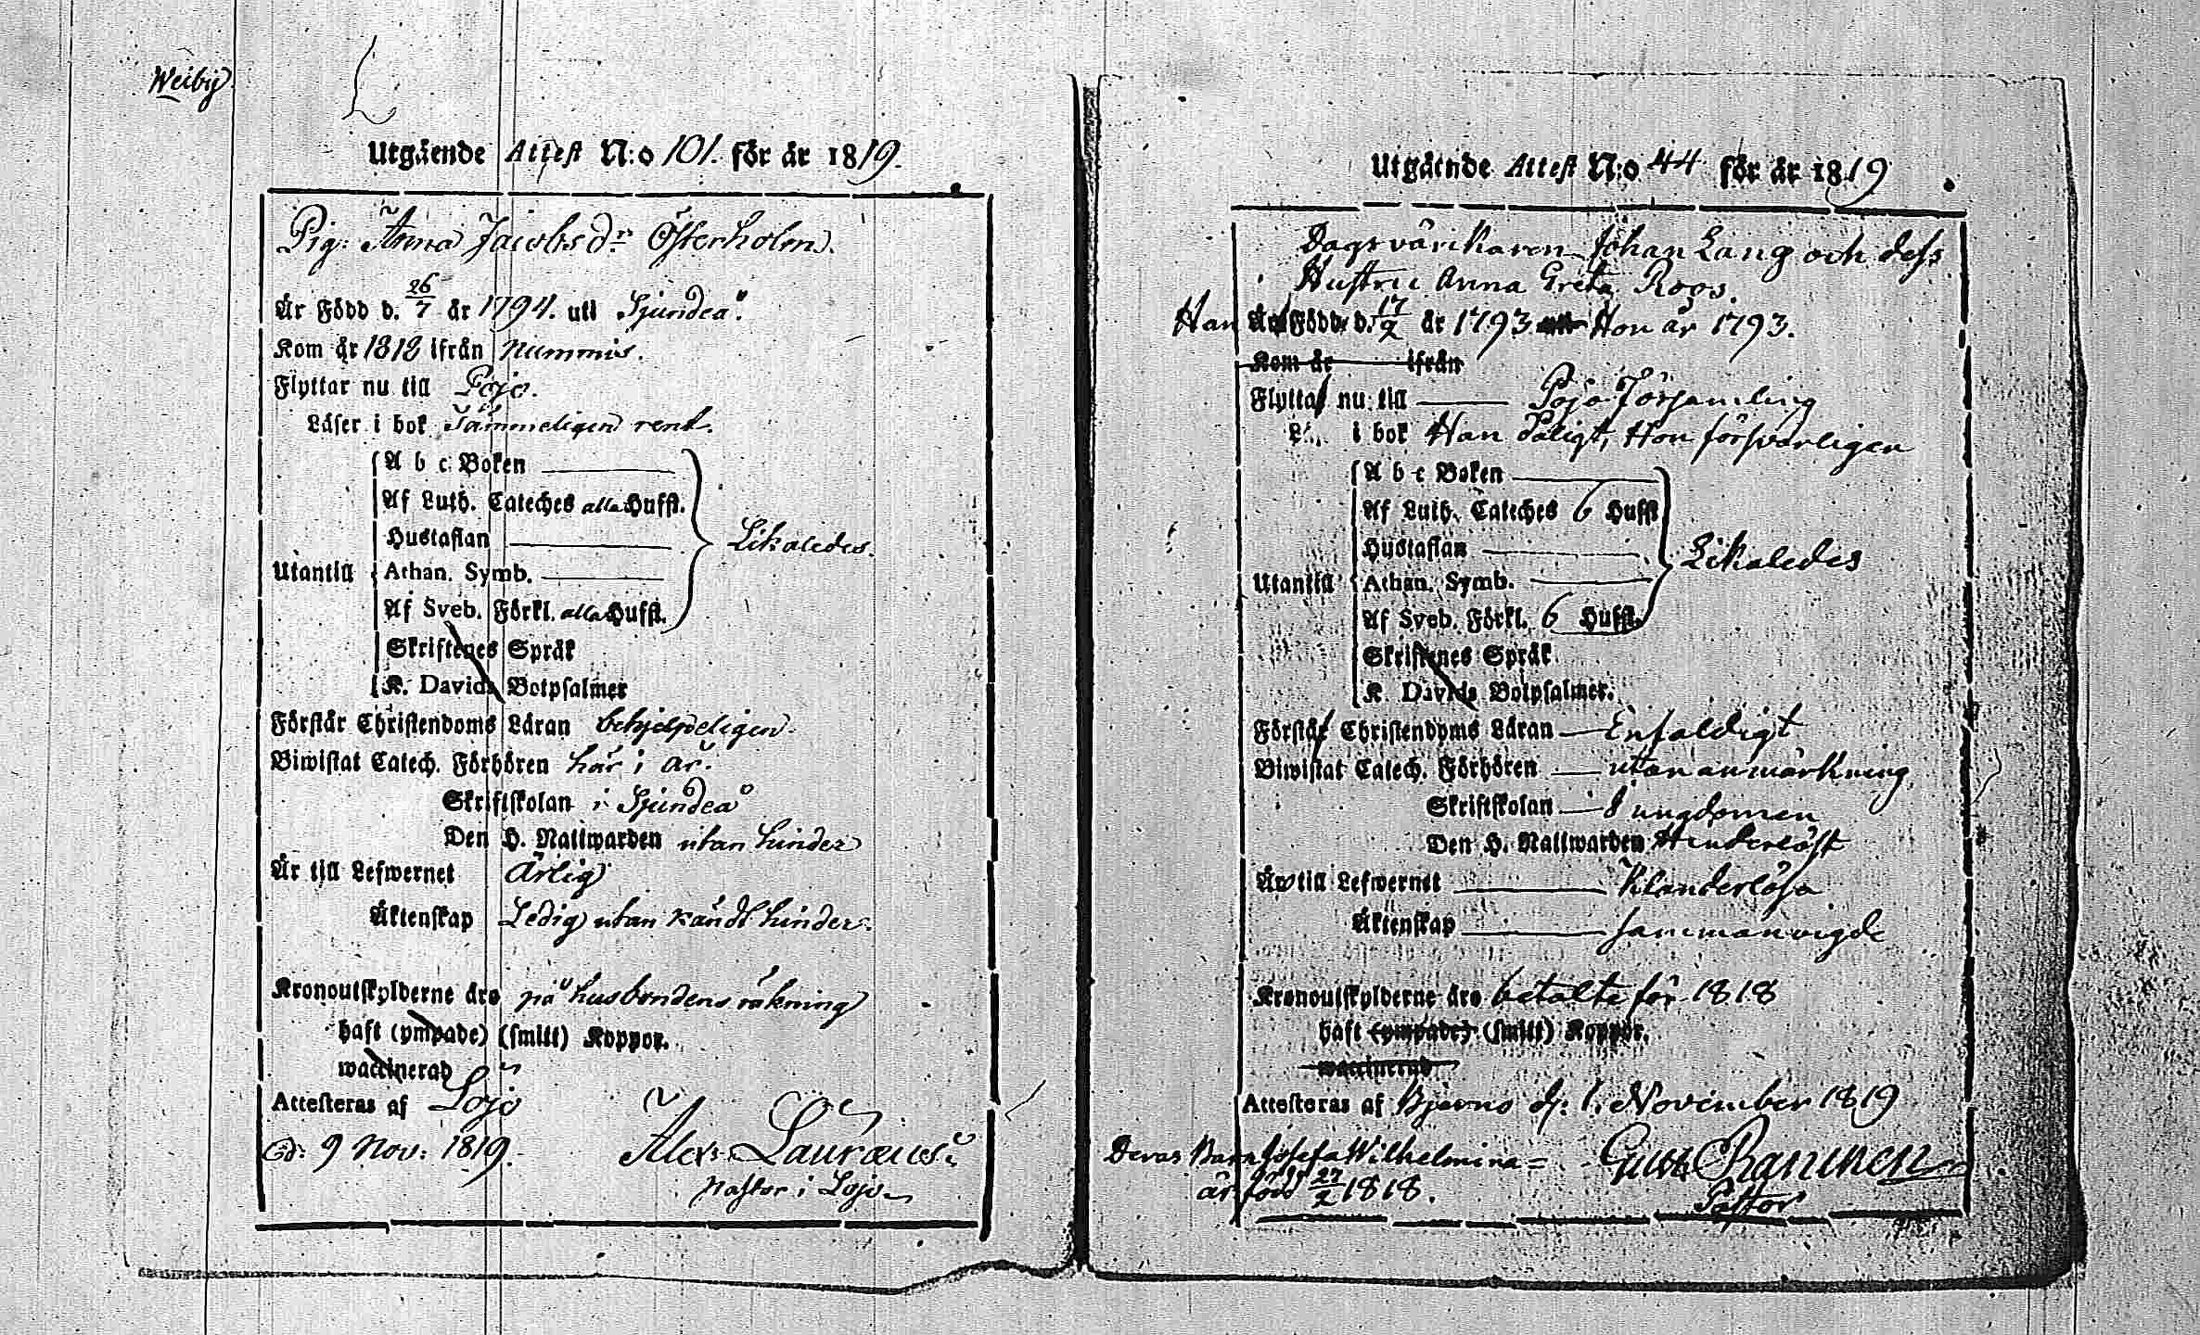 Weiby
Utgående Attest N:o 101. för år 1819.
Pig: Anna Jacobsdr Österholm.
Är Född d. 26/7 år 1794. uti Sjundeå.
Kom år 1818 ifrån Nummis.
Flyttar nu till Pojo.
Läser i bok Tämmeligen rent.
A b c Boken
Af Luth. Cateches alla Hufst.
Hustaflan
Likaledes.
Utantill
Athan. Symb.
Af Sveb. Förkl. alla Hufst.
Skriftenes Språk
K. Davids Botpsalmer
Förstår Christendoms Läran behjelpeligen.
Biwistat Catech. Förhören här i år.
Skriftskolan i Sjundeå
Den H. Nattwarden utan hinder
Är till Lefwernet Ärlig
Äktenskap Ledig utan kändt hinder.
Kronoutskylderne äro på husbondens räkning
haft (ympade) (smitt) Koppor.
waccinerad
Attesteras af Lojo
d. 9 Nov: 1819.
Alex. Lauræus.
Pastor i Lojo
Utgående Attest N:o 44 för år 1819
Dagsvärikaren Johan Lang och dess
Hustru Anna Greta Roos.
Han Är Född d. 17/2 år 1793 Hon år 1793.
Kom år ifrån
Flyttar nu till Pojo Församling
i bok Han Dåligt, Hon försvarligen
A b c Boken
Af Luth. Cateches 6 Hufst
Hustaflan
Likaledes
Utantill
Athan. Symb.
Af Sveb. Förkl. 6 Hufst.
Skriftenes Språk
K. Davids Botpsalmer.
Förstår Christendoms Läran Enfaldigt
Biwistat Catech. Förhören utan anmärkning
Skriftskolan i ungdomen
Den H. Nattwarden Hinderlöst
Äro till Lefwernet Klanderlösa
Äktenskap sammanvigde
Kronoutskylderne äro betalte för 1818
haft (ympade) (smitt) Koppor.
waccinerad
Attesteras af Bjerno d. 1. November 1819
Deras Barn Josefa Wilhelmina
är född 27/2 1818.
Gust Rancken
Pastor